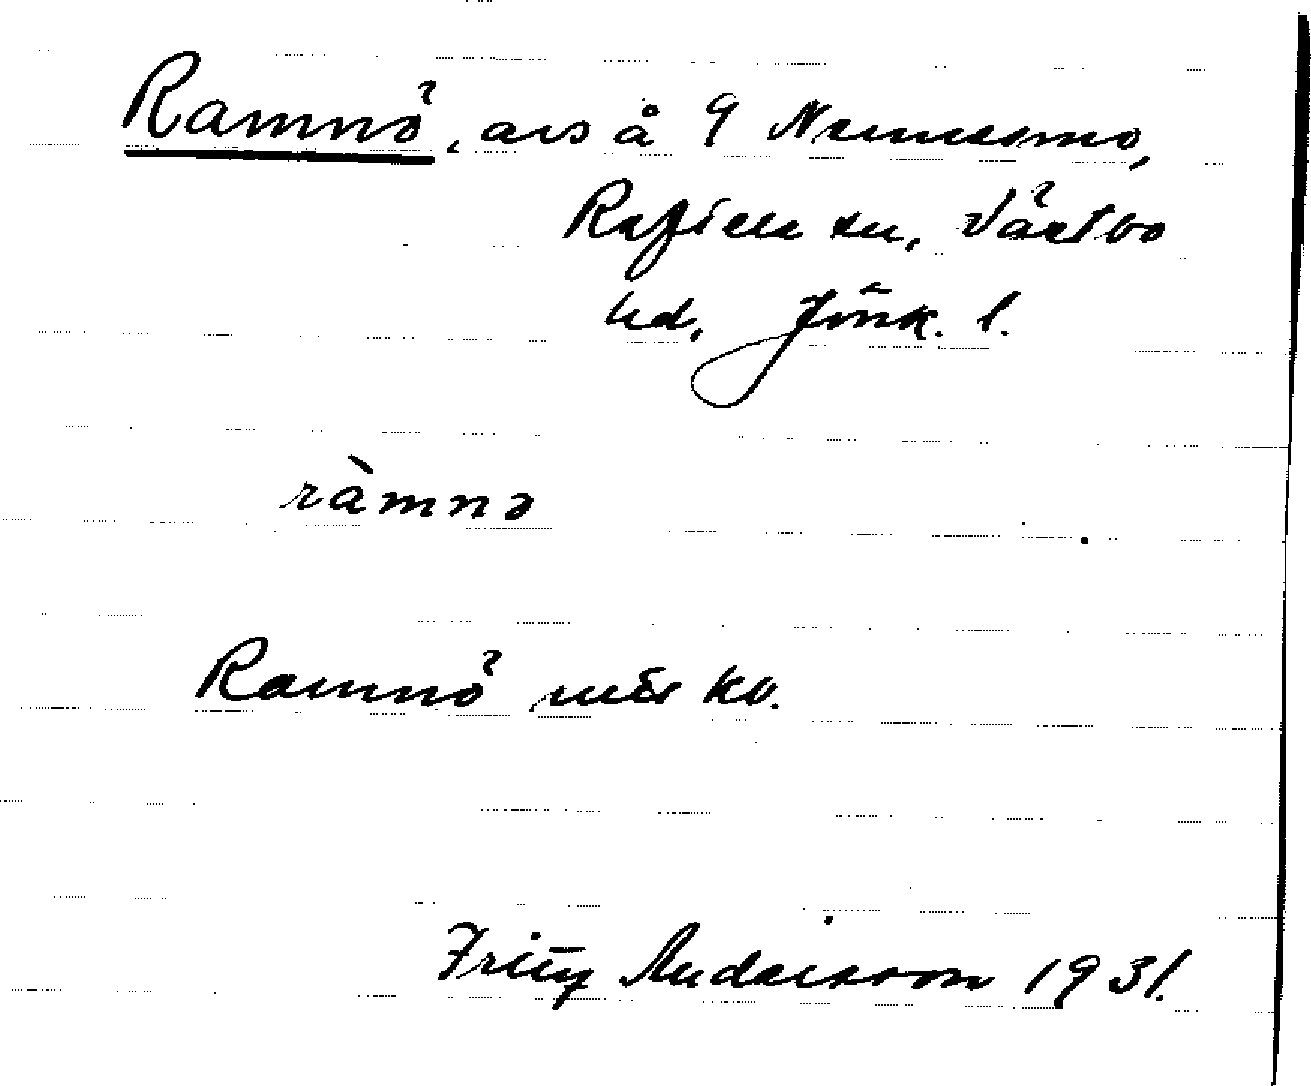 Ramnö, avs å 9 Nennesmo,
Reftele sn, Västbo
hd, Jönk. l.
ràmnə
Ramnö mtr kv.
Fritz Andersson 1931.